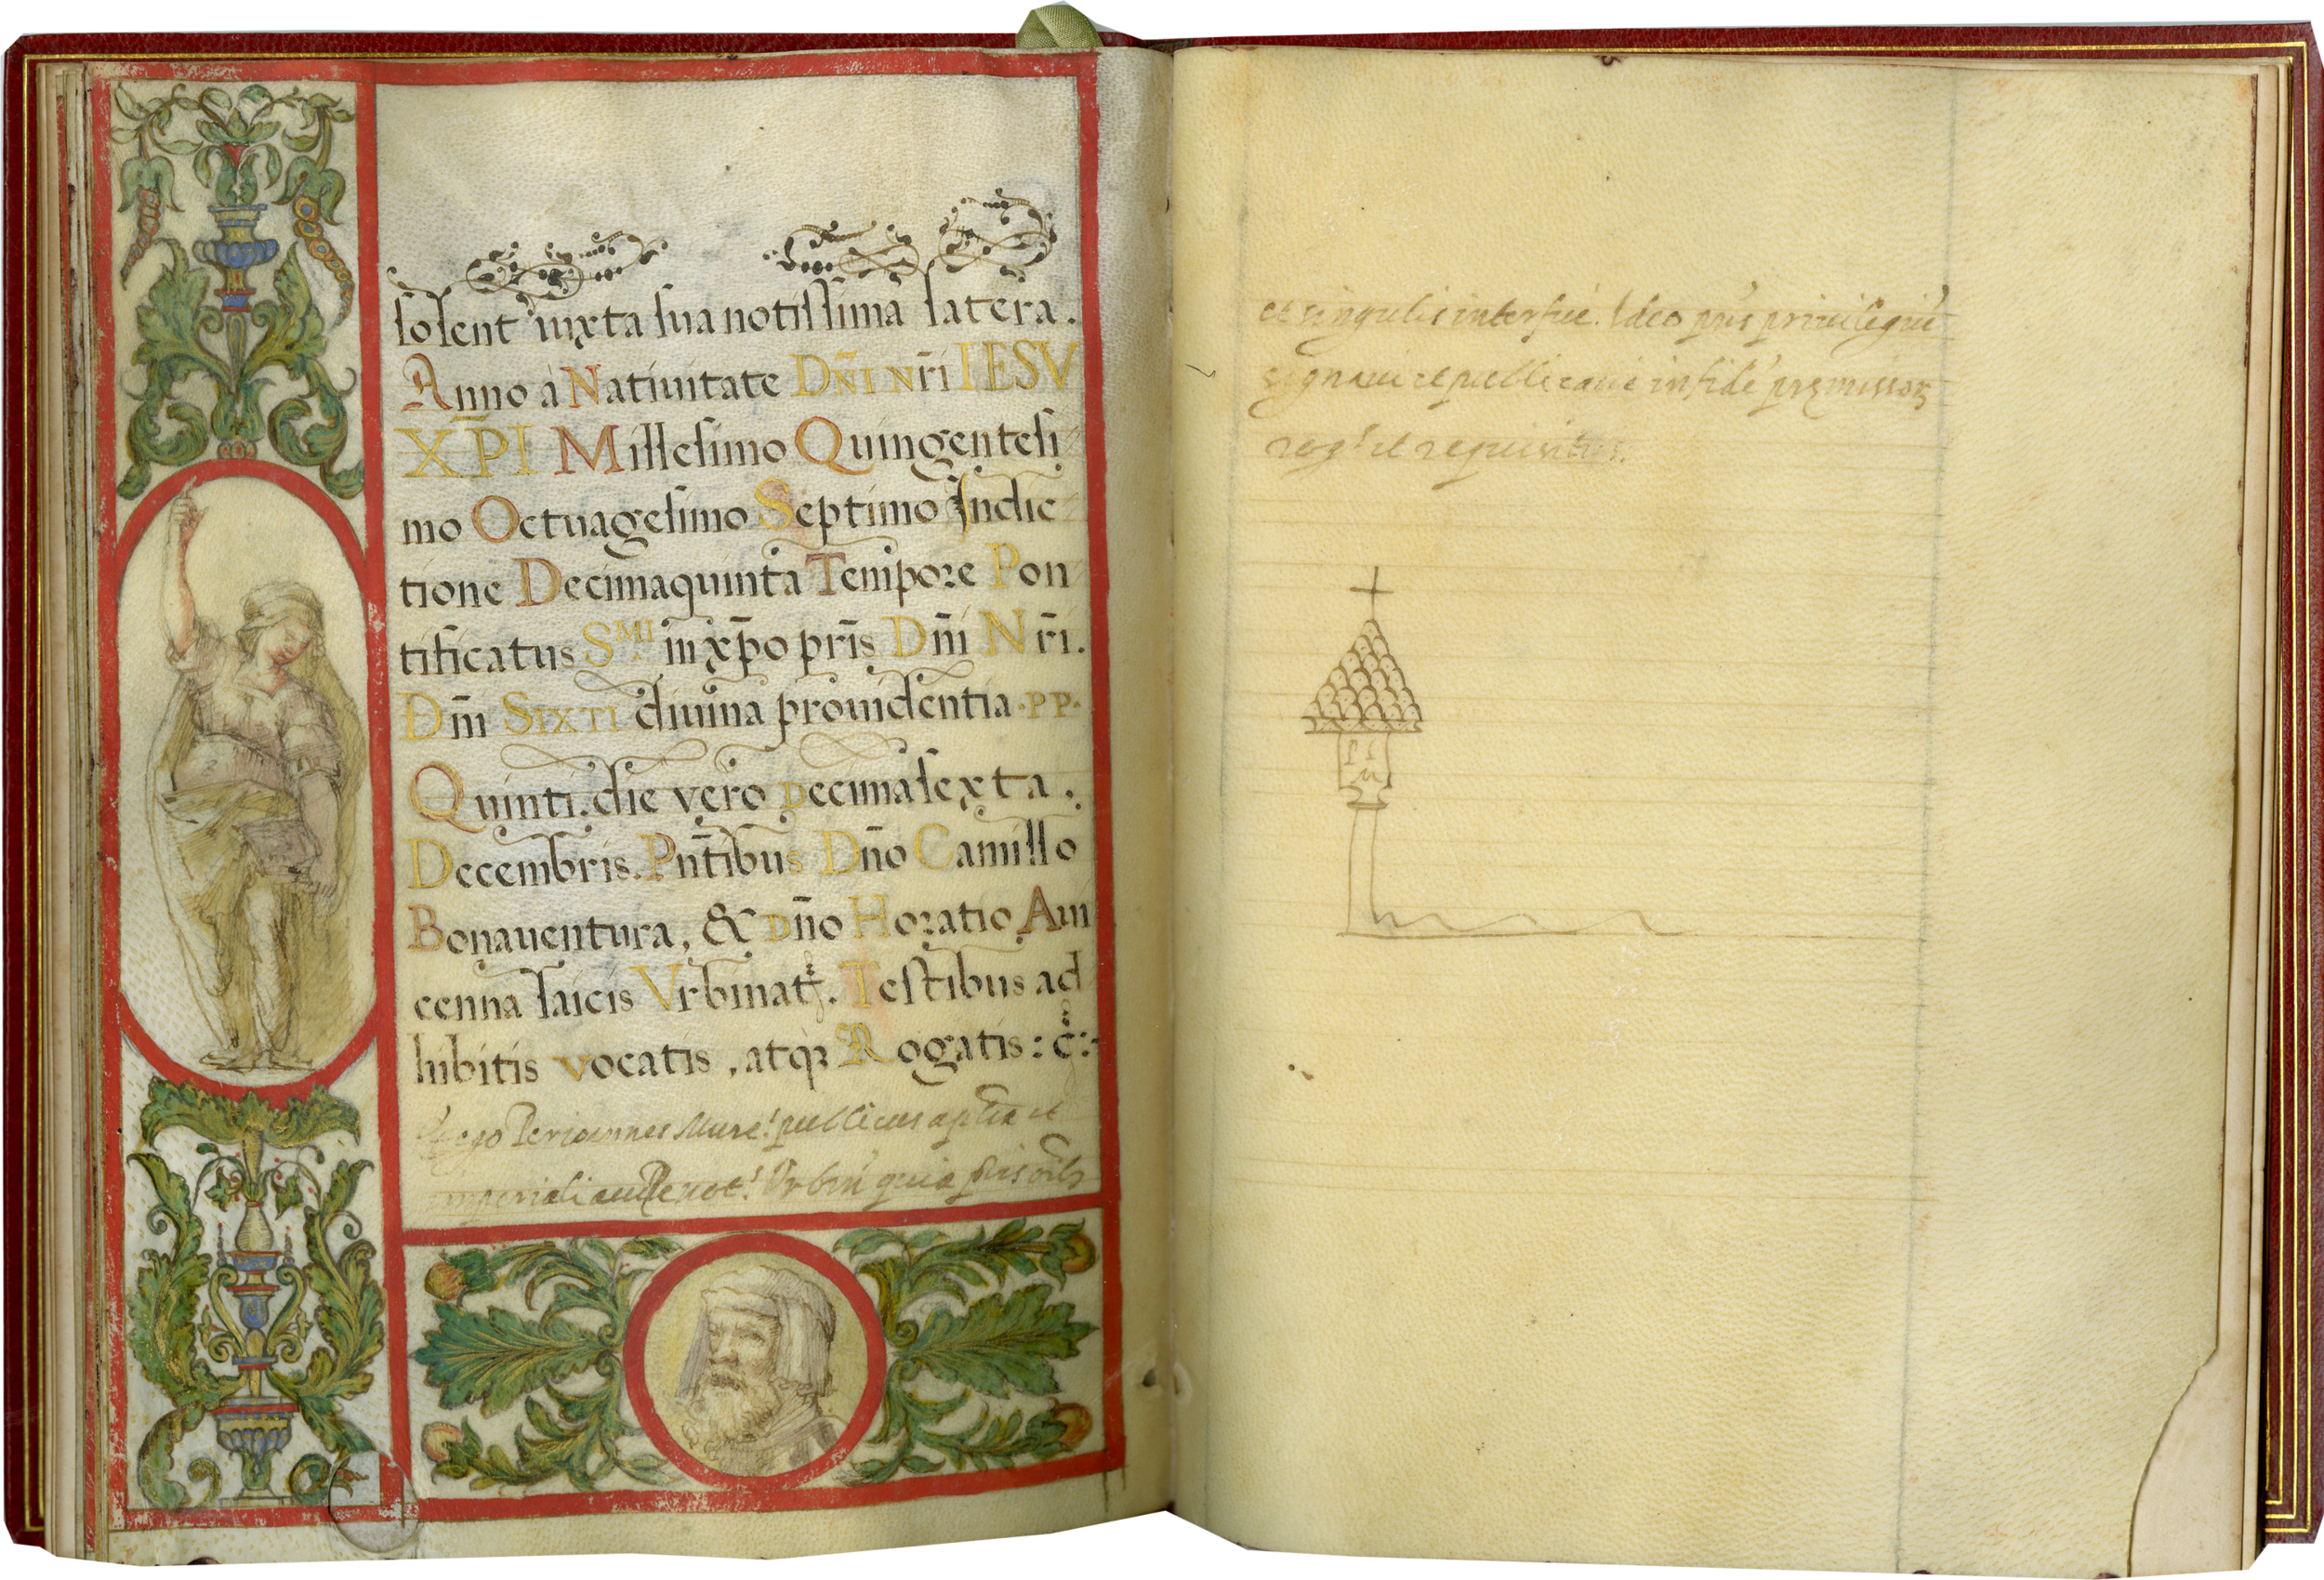 solent iuxta sua notissima latera.
Anno à Natiuitate DÑI NR̄I IESV
XP̄I Millesimo Quingentesi
mo Octuagesimo Septimo Indic
tione Decimaquinta Tempore Pon
tificatus S.MI in xp̄o pr̄is Dñi Nr̄i.
Dñi SIXTI diuina prouidentia ·PP·
Quinti. die vero Decimasexta.
Decembris. Pñtibus Dño Camillo
Bonauentura, & Dño Horatio Aui
cenna laicis Vrbinat. Testibus ad
hibitis vocatis, atqꝫ Rogatis: c̄:
ego Perioannes publicus aplica et
imperiali not. Vrbin quia
et singulis interfui. Ideo pñs priuilegiū
signaui et publicaui in fidē pręmissorꝝ
rog.s et requisitus.